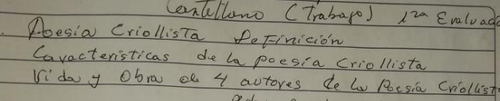 Castellano (Trabajo) 1ra Evaluac
Poesía Criollista Definición
Características de la poesía Criollista
Vida y Obra de 4 autores de la Poesía Criollist